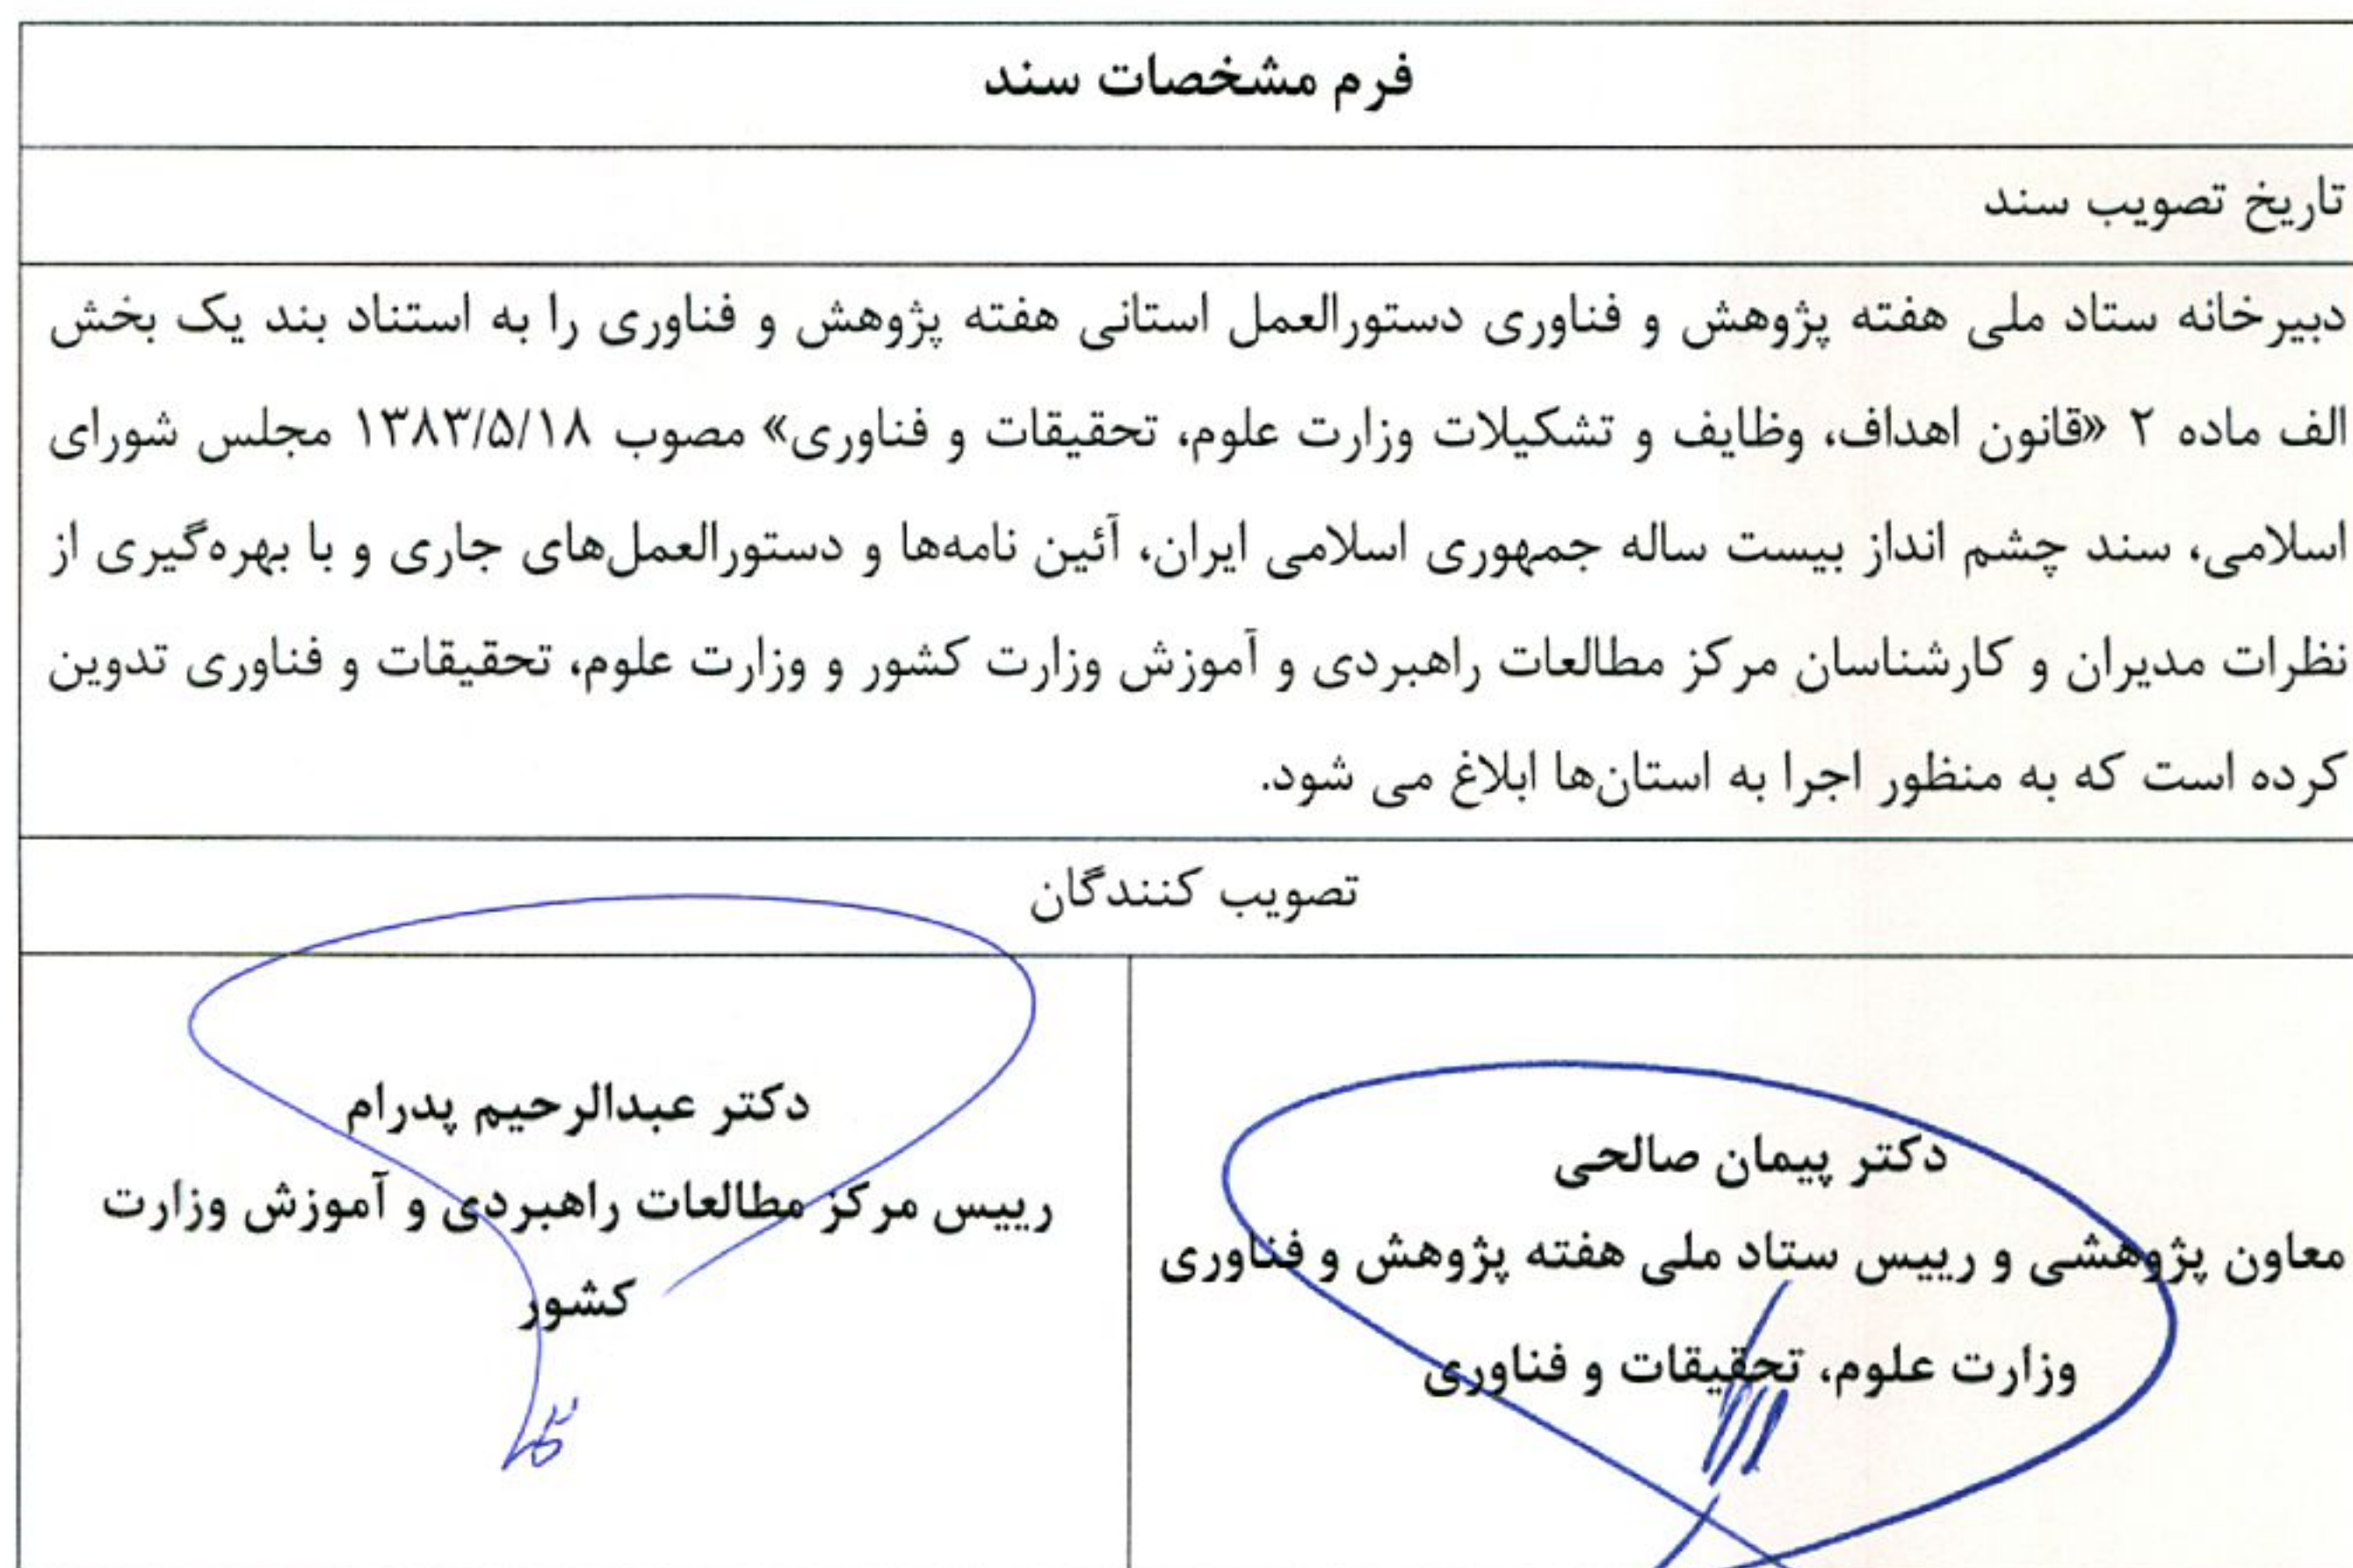 فرم مشخصات سند
تاریخ تصویب سند
دبیرخانه ستاد ملی هفته پژوهش و فناوری دستورالعمل استانی هفته پژوهش و فناوری را به استناد بند یک بخش
الف ماده ۲ «قانون اهداف، وظایف و تشکیلات وزارت علوم، تحقیقات و فناوری» مصوب ۱۳۸۳/۵/۱۸ مجلس شورای
اسلامی، سند چشم انداز بیست ساله جمهوری اسلامی ایران، آئین نامه‌ها و دستورالعمل‌های جاری و با بهره‌گیری از
نظرات مدیران و کارشناسان مرکز مطالعات راهبردی و آموزش وزارت کشور و وزارت علوم، تحقیقات و فناوری تدوین
کرده است که به منظور اجرا به استان‌ها ابلاغ می شود.
تصویب کنندگان
دکتر پیمان صالحی
معاون پژوهشی و رییس ستاد ملی هفته پژوهش و فناوری
وزارت علوم، تحقیقات و فناوری
دکتر عبدالرحیم پدرام
رییس مرکز مطالعات راهبردی و آموزش وزارت
کشور